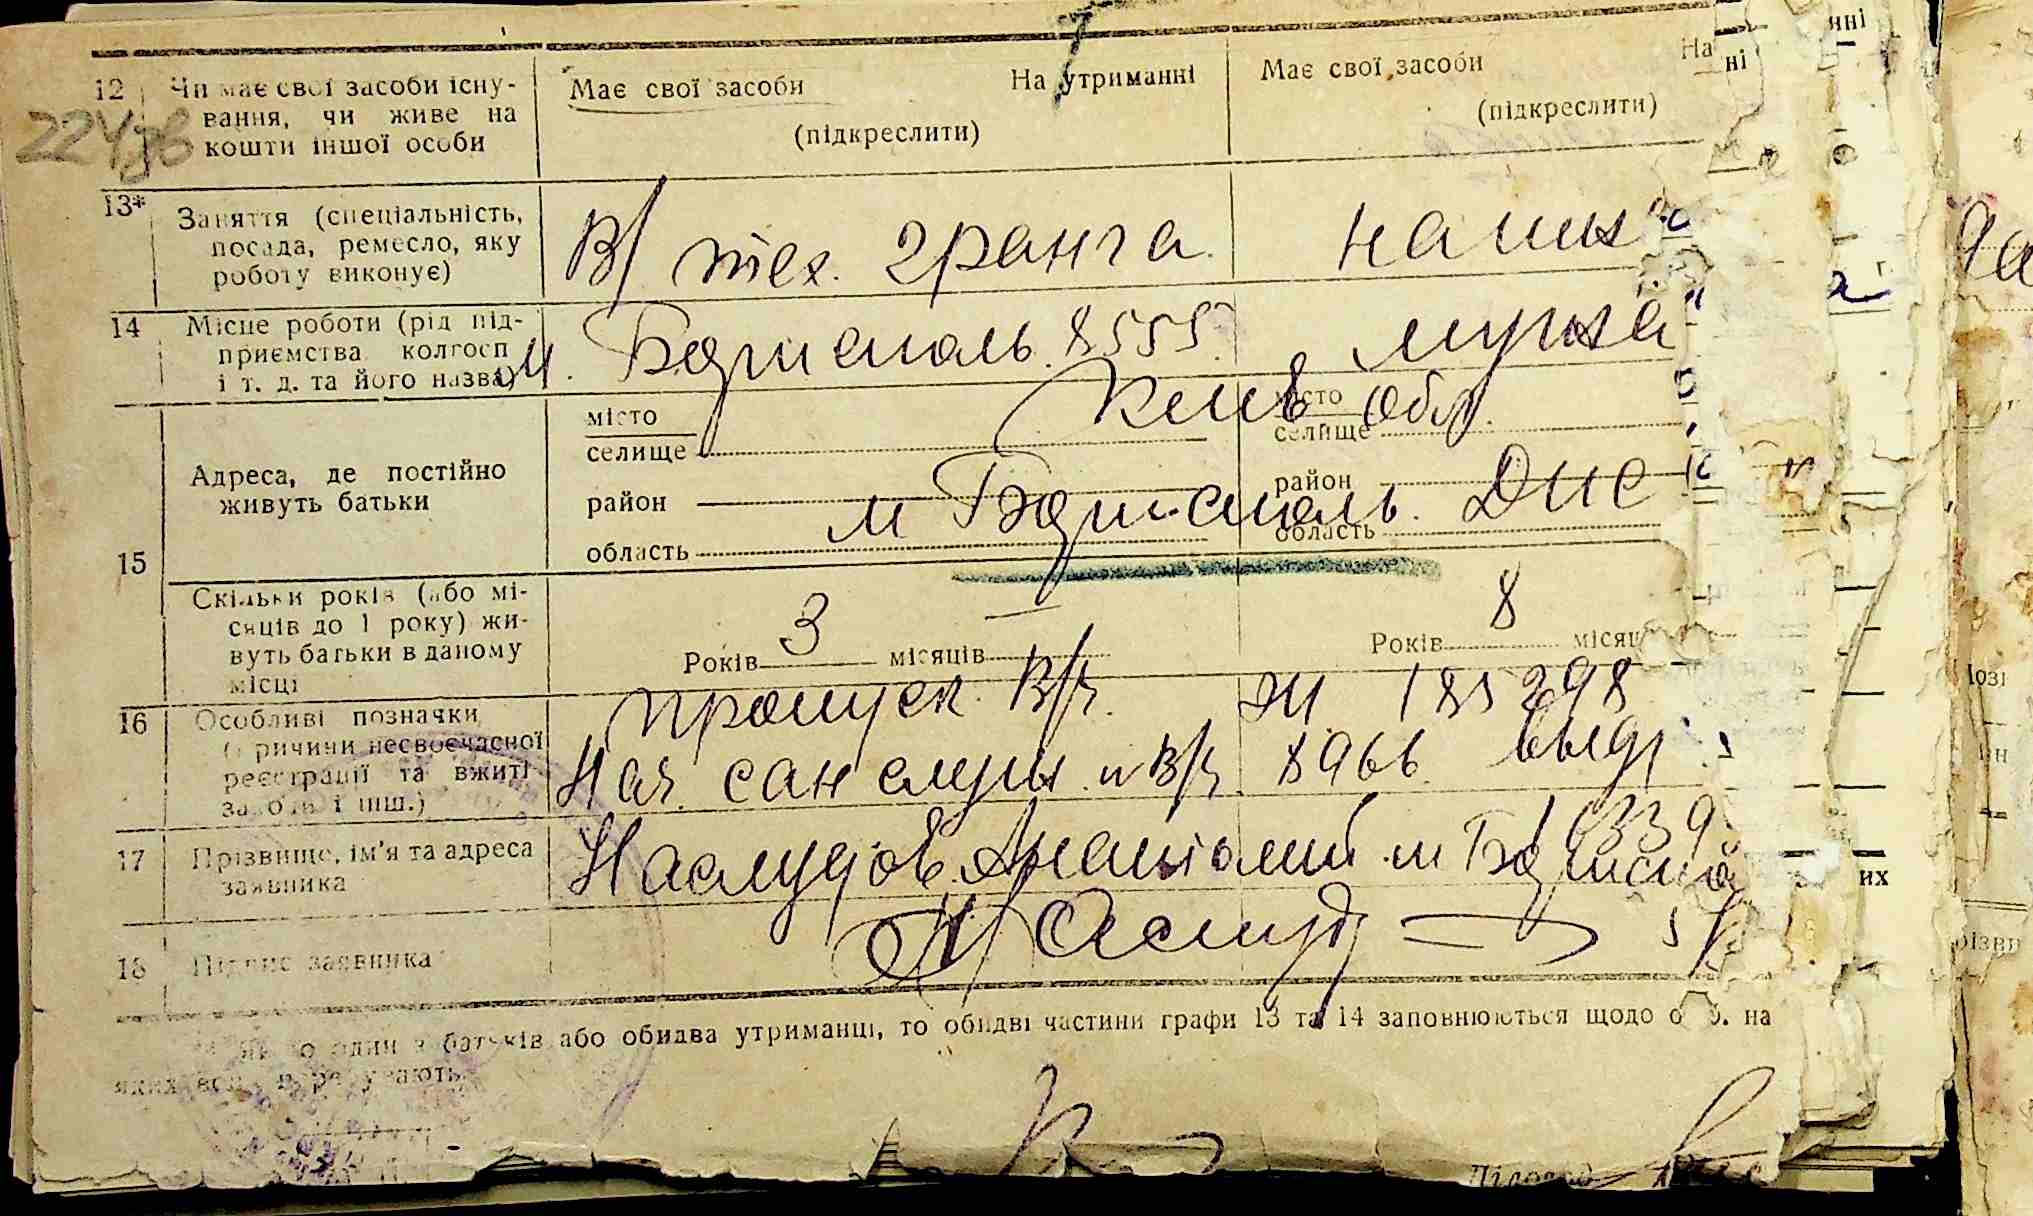 12 Чи має свої засоби існу-
вання, чи живе на
кошти іншої особи
Має свої засоби На утриманні
(підкреслити)
Має свої засоби На ні
(підкреслити)
224зв
13* Заняття (спеціальність,
посада, ремесло, яку
роботу виконує)
В/ тех. 2 ранга.
на иж
14 Місце роботи (рід під-
приємства колгосп
і т. д. та його назва)
м. Бориспель 8555.
мужа
15 Адреса, де постійно
живуть батьки
місто
селище
район
область
місто
селище
район
область
Киев обл.
м Бориспель. ДНС
Скільки років (або мі-
сяців до 1 року) жи-
вуть батьки в даному
місці
Років 3 місяців —
Років 8 місяц
16 Особливі позначки
(причини несвоєчасної
реєстрації та вжиті
заходи і інш.)
пропуск В/ч. ЖІ 185298
Нач. сан службы в/ч. 8966. выд
6339
17 Прізвище, ім'я та адреса
заявника
Анатолий м Борисп
18 Підпис заявника
якщо один з батьків або обидва утриманці, то обидві частини графи 13 та 14 заповнюються щодо осіб. на
яких вони перебувають
Діловод
них
нні